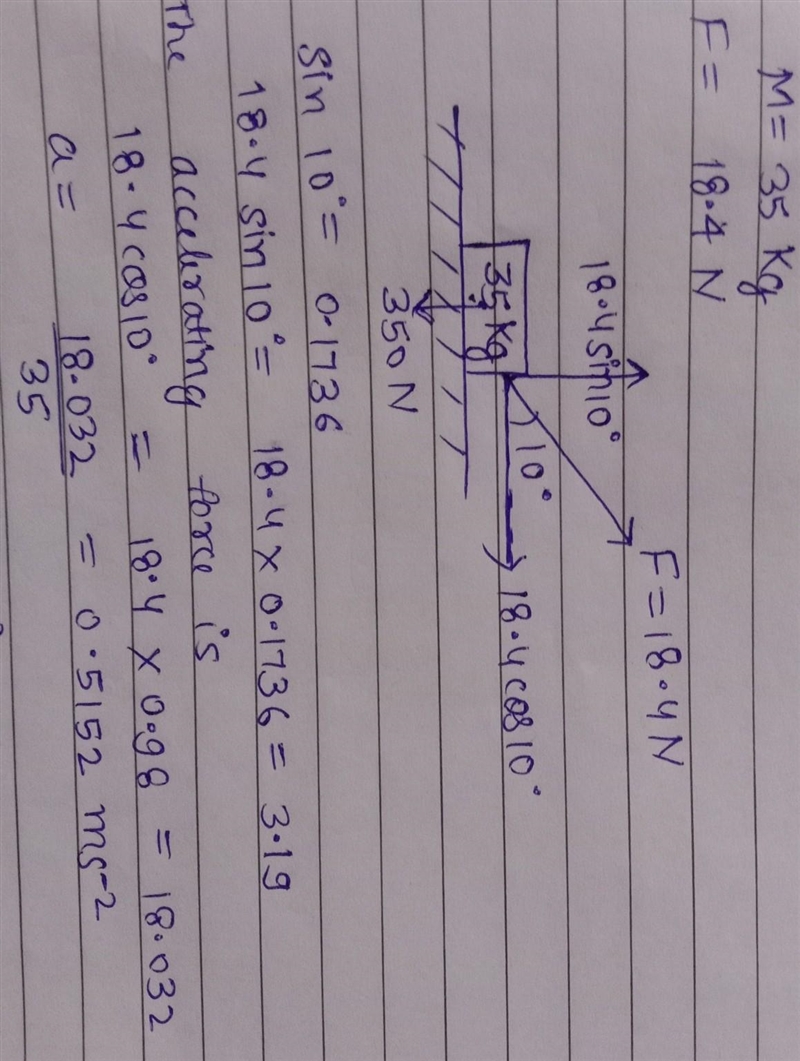 M= 35 Kg
F= 18.4 N
18.4sin10°
F=18.4N
10°
35 Kg
18.4cos10°
350N
Sin 10°= 0.1736
18.4 sin10°= 18.4×0.1736= 3.19
The accelrating force is
18.4cos10° = 18.4 × 0.98 = 18.032
a= 18.032 = 0.5152 ms⁻²
35